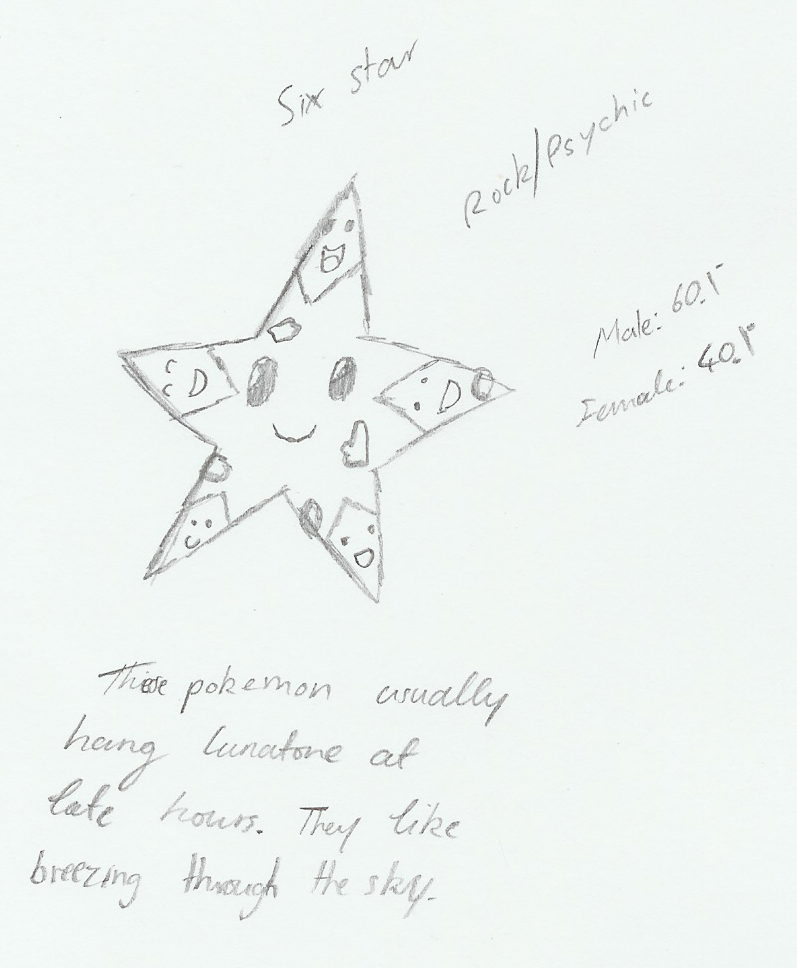 Six star
Rock/Psychic
Male: 60%
Female: 40%
These pokemon usually
hang lunatone at
late hours. They like
breezing through the sky.